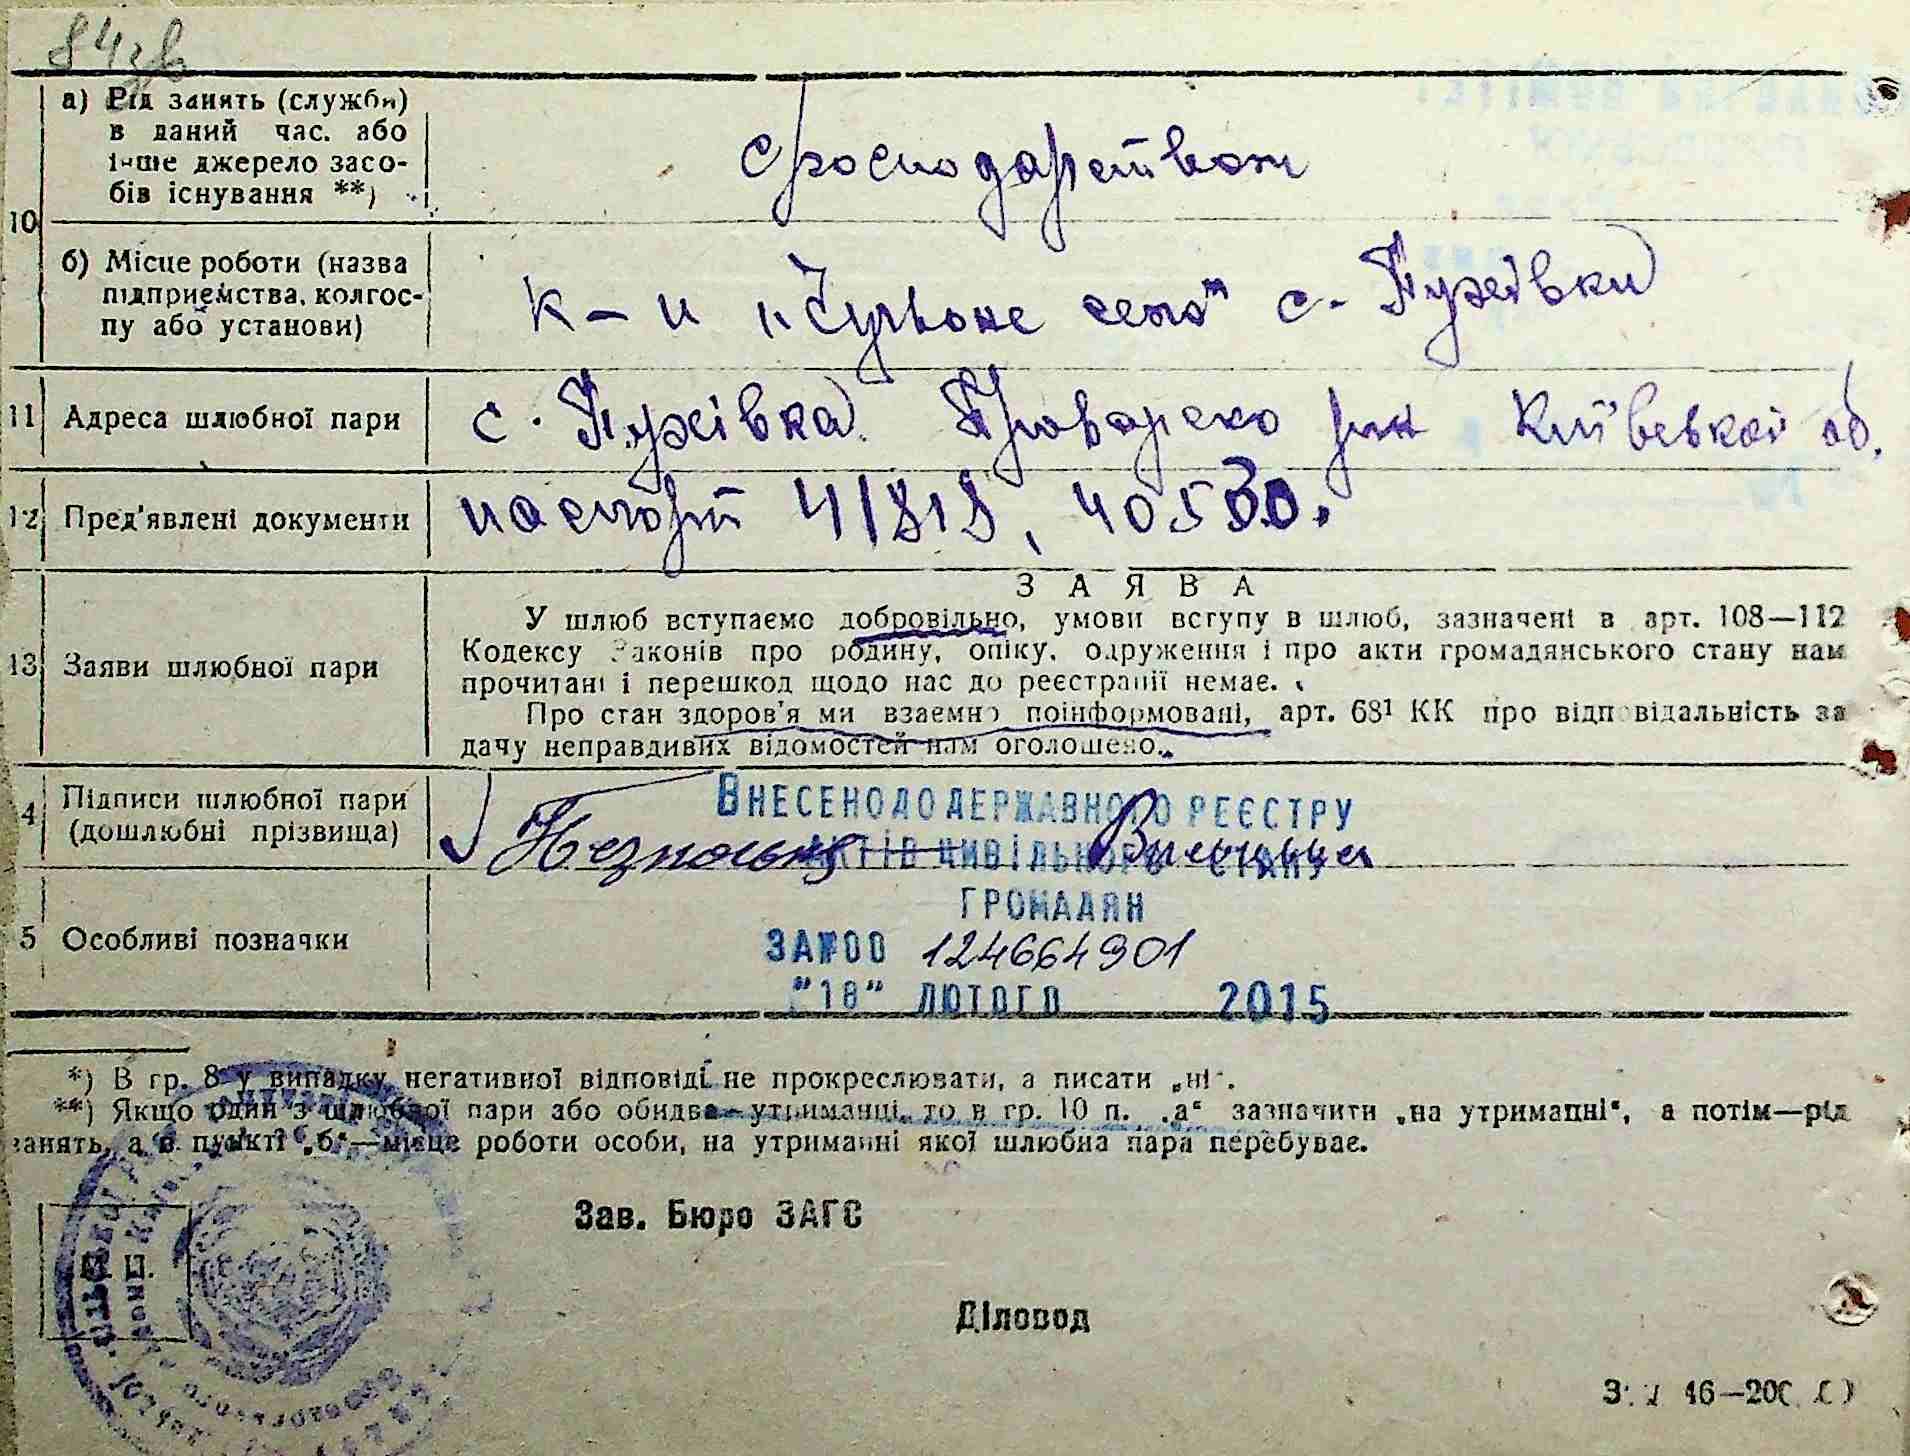 84зв
10
а) Рід занять (служби)
в даний час. або
інше джерело засо-
бів існування **)
б) Місце роботи (назва
підприємства, колгос-
пу або установи)
к-п „Червоне село" с. Пухівки
11 Адреса шлюбної пари
с. Пухівка Броварско р-н Київської об.
12 Пред'явлені документи
паспорт 41818, 40530.
13 Заяви шлюбної пари
ЗАЯВА
У шлюб вступаємо добровільно, умови вступу в шлюб, зазначені в арт. 108—112
Кодексу Законів про родину, опіку, одруження і про акти громадянського стану нам
прочитані і перешкод щодо нас до реєстрації немає.
Про стан здоров'я ми взаємно поінформовані, арт. 68¹ КК про відповідальність за
дачу неправдивих відомостей нам оголошено.
4 Підписи шлюбної пари
(дошлюбні прізвища)
ВНЕСЕНО ДО ДЕРЖАВНОГО РЕЄСТРУ
АКТІВ ЦИВІЛЬНОГО СТАНУ
ГРОМАДЯН
5 Особливі позначки
ЗА №00 124664901
"18" ЛЮТОГО 2015
*) В гр. 8 у випадку негативної відповіді не прокреслювати, а писати „ні".
**) Якщо один з шлюбної пари або обидва—утриманці, то в гр. 10 п. „а" зазначити „на утриманні", а потім—рід
занять, а в пункті „б"—місце роботи особи, на утриманні якої шлюбна пара перебуває.
Зав. Бюро ЗАГС
Діловод